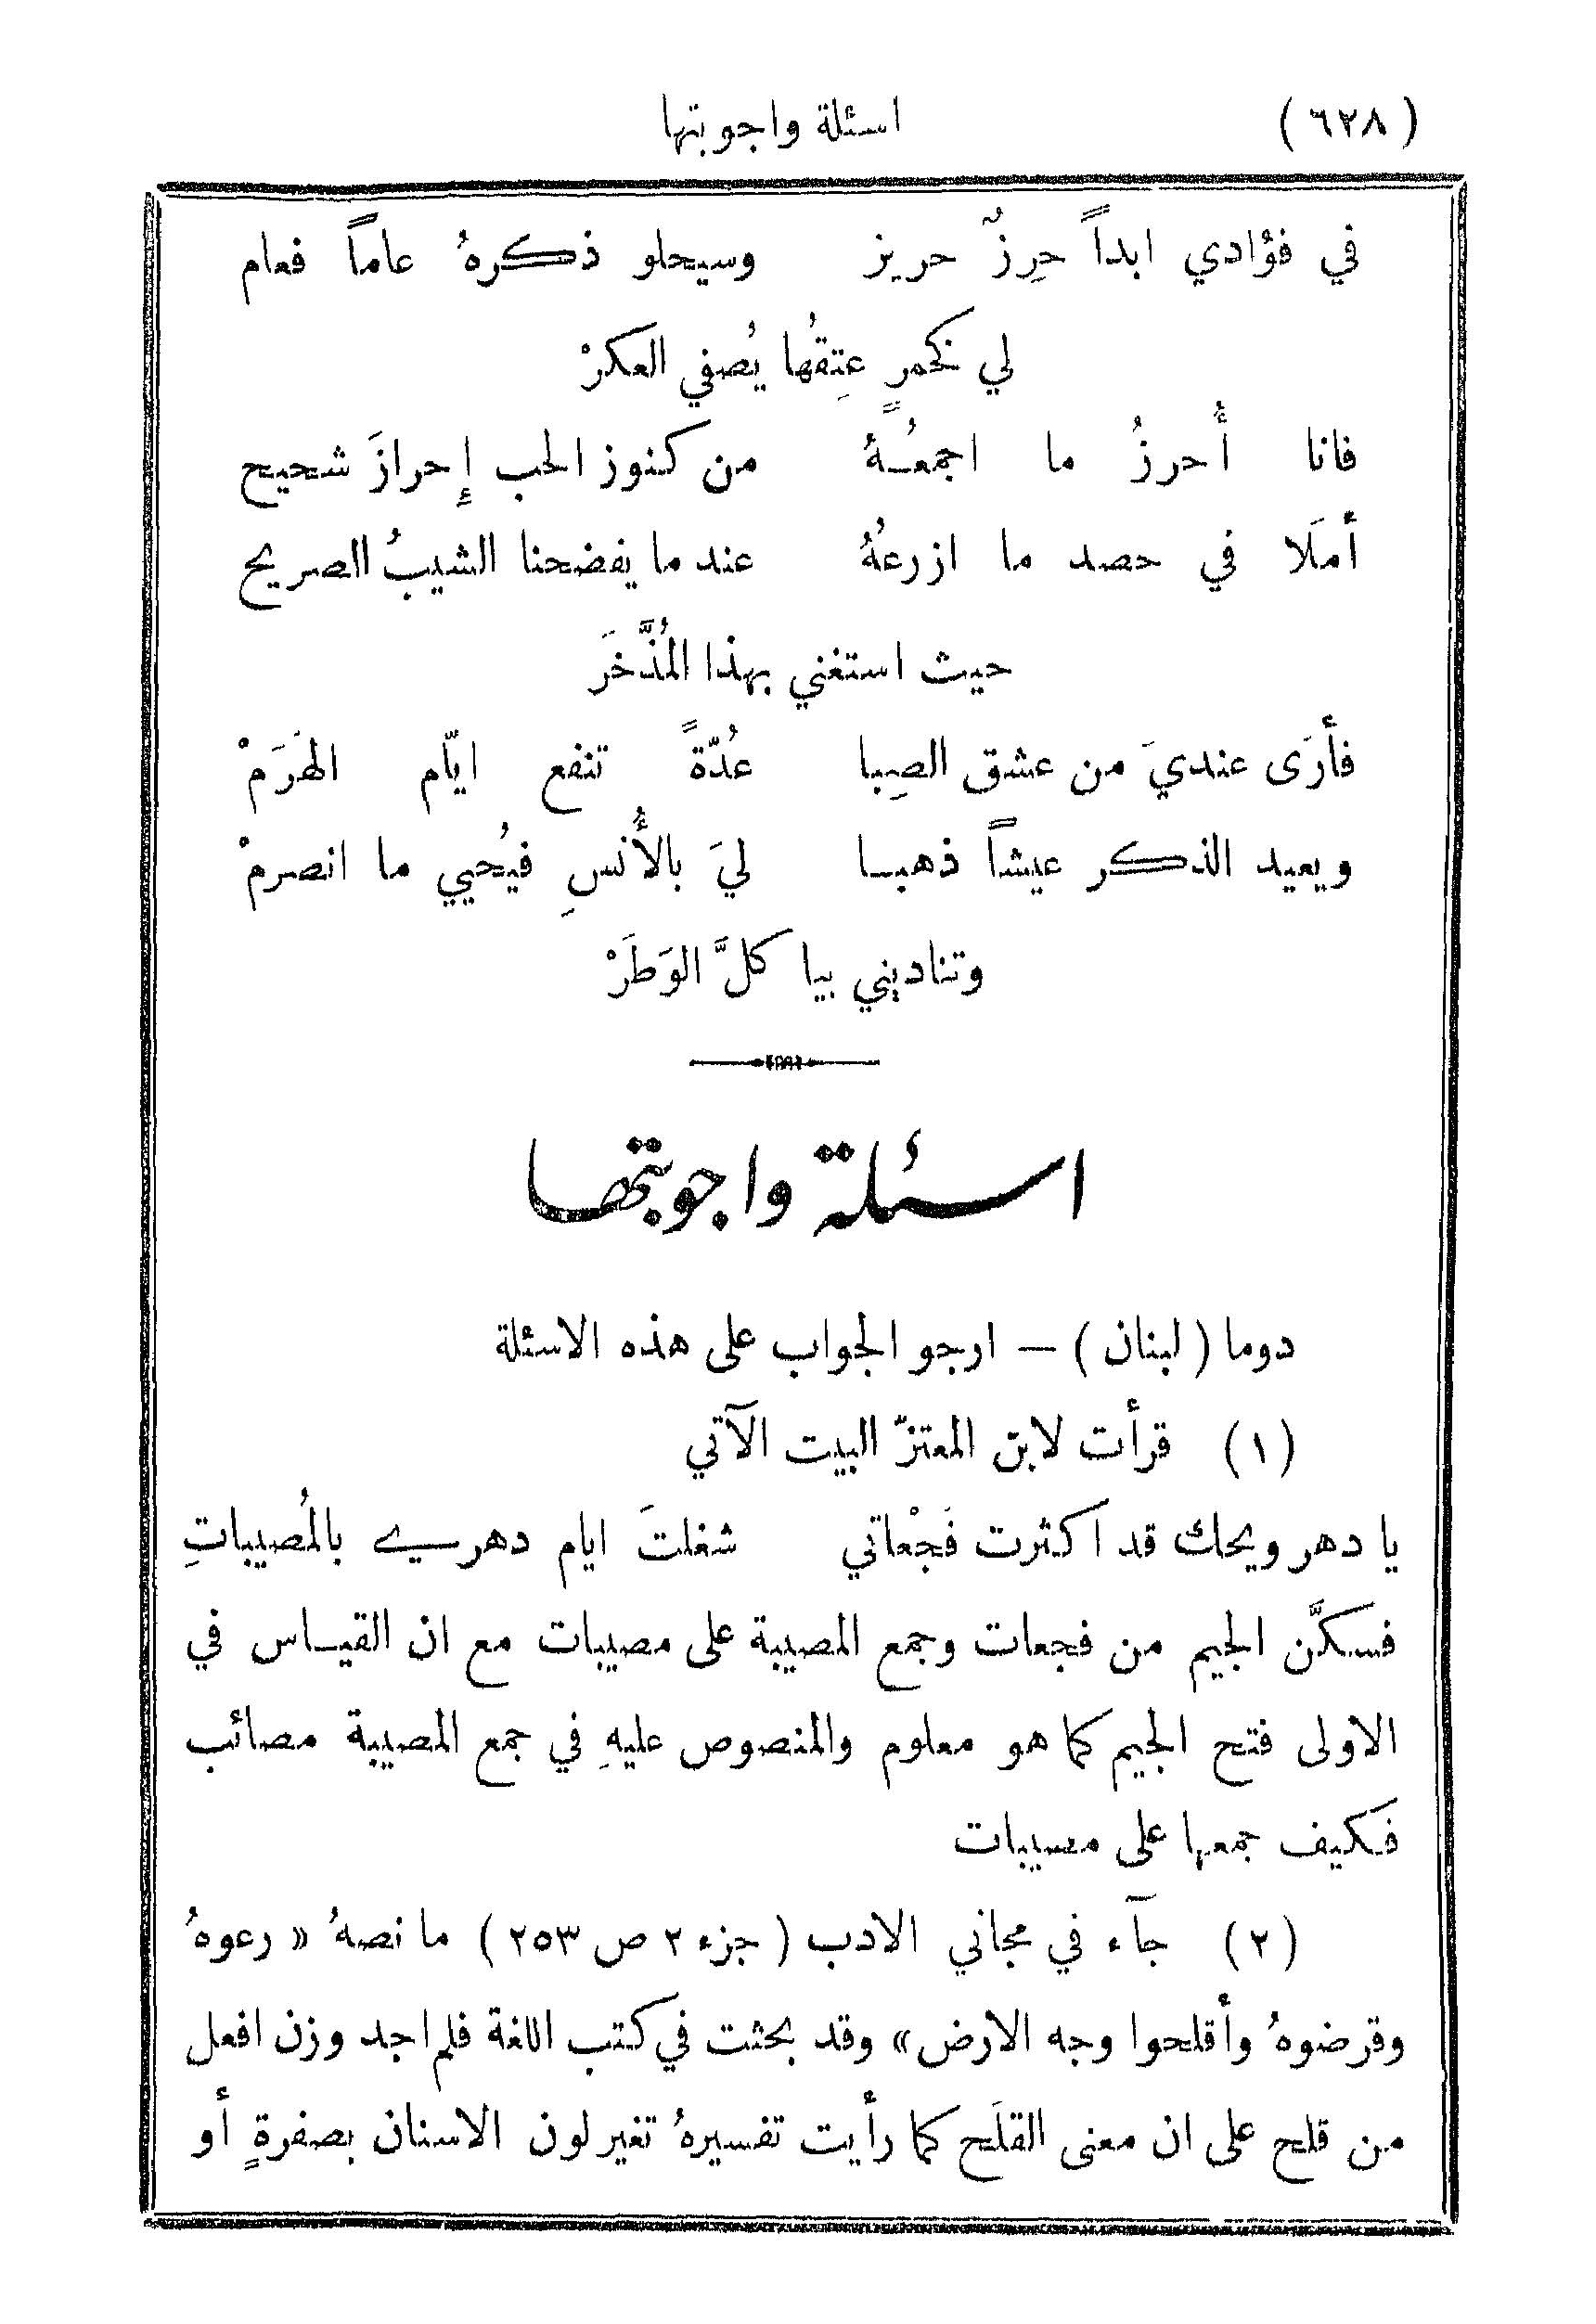 (٦٢٨) اسئلة واجوبتها
في فؤادي ابداً حِرزٌ حريز وسيحلو ذكرهُ عاماً فعام
لي كخمرٍ عِتِقُها يُصفي العكرْ
فانا أُحرزُ ما اجمعُـهُ من كنوز الحب إِحرازَ شحيح
أملَا في حصد ما ازرعهُ عند ما يفضحنا الشيبُ الصريح
حيث استغني بهذا المُذَّخَر
فأرَى عنديَ من عشق الصِبا عُدّةً تنفع ايّام الهَرَمْ
ويعيد الذكر عيشاً ذهبـا ليَ بالأُنسِ فيُحيي ما انصرمْ
وتناديني بيا كلَّ الوَطَرْ
اسئلة واجوبتها
دوما (لبنان) — ارجو الجواب على هذه الاسئلة
(١) قرأت لابن المعتزّ البيت الآتي
يا دهر ويحك قد اكثرت فَجْعاتي شغلتَ ايام دهري بالمُصيباتِ
فسكَّن الجيم من فجعات وجمع المصيبة على مصيبات مع ان القيـاس في
الاولى فتح الجيم كما هو معلوم والمنصوص عليهِ في جمع المصيبة مصائب
فكيف جمعها على مصيبات
(٢) جآء في مجاني الادب (جزء ٢ ص ٢٥٣) ما نصهُ « رعوهُ
وقرضوهُ وأقلحوا وجه الارض» وقد بحثت في كتب اللغة فلم اجد وزن افعل
من قلح على ان معنى القلَح كما رأيت تفسيرهُ تغير لون الاسنان بصفرةٍ أو